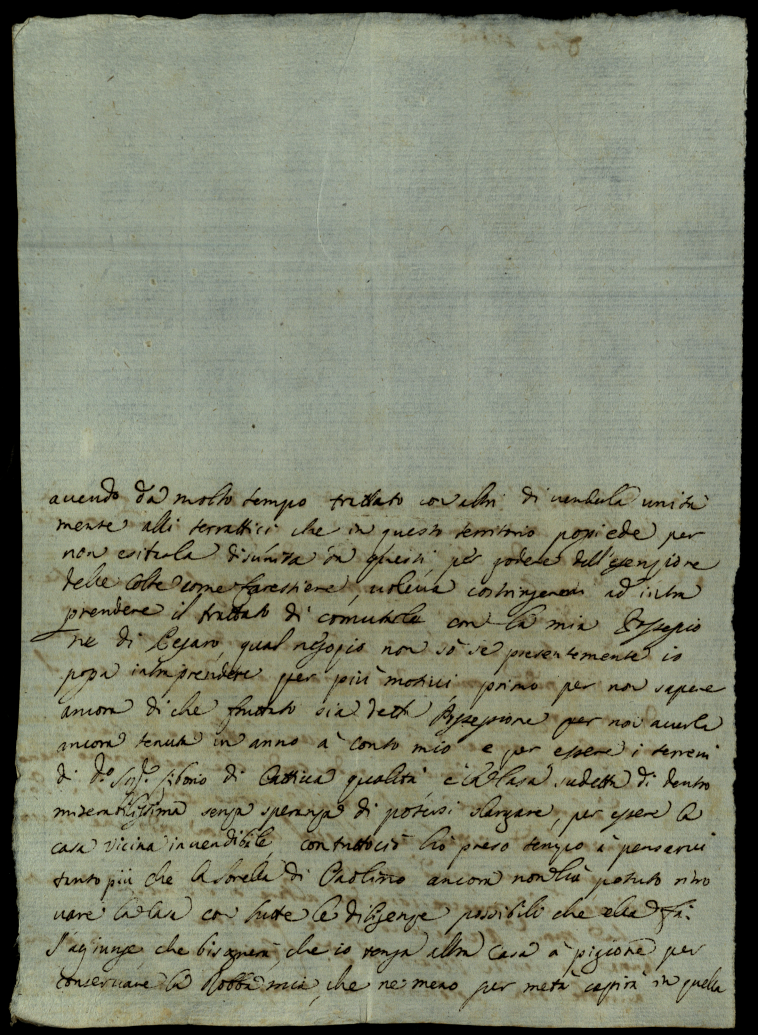 avendo da molto tempo trattato con altri di venderla unita
mente alli terrattici che in questo territorio possiede per
non esitarla disunita da questi per godere dell'esenzione
delle Colte come forestiere, voleva costringermi ad intra
prendere il trattato di comutarla con la mia Possessio
ne di Cesaro, qual negozio non sò se presentemente io
possa intraprendere per più motivi primo per non sapere
ancora di che fruttato sia detta Possessione per non averla
ancora tenuta un anno à conto mio e per essere i terreni
di d.o Sig.r di Cattiva qualità e la Casa sudetta di dentro
miserabilissima senza speranza di potersi slargare, per essere la
casa vicina invendibile, contuttociò hò preso tempo à pensarvi
tanto più che la sorella di Paolino ancora non hà potuto ritro
vare la Casa con tutte le diligenze possibili che ella fà.
S'agiunge che bisognerà, che io tenga altra Casa à pigione per
conservare la Robba mia, che ne meno per metà capirà in quella